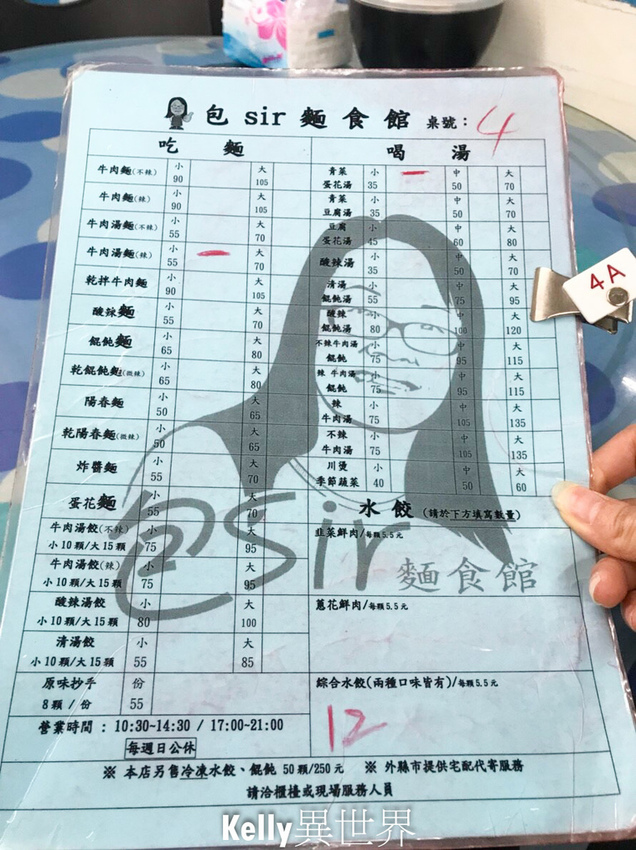 包 sir 麵 食 館 桌號： 4
吃 麵
牛肉麵(不辣) 小 90 大 105
牛肉麵(辣) 小 90 大 105
牛肉湯麵(不辣) 小 55 大 70
牛肉湯麵(辣) 小 55 大 70
乾拌牛肉麵 小 90 大 105
酸辣麵 小 55 大 70
餛飩麵 小 65 大 80
乾餛飩麵(微辣) 小 65 大 80
陽春麵 小 50 大 65
乾陽春麵(微辣) 小 50 大 65
炸醬麵 小 55 大 70
蛋花麵 小 55 大 70
牛肉湯餃(不辣) 小 大
小10顆/大15顆 75 95
牛肉湯餃(辣) 小 大
小10顆/大15顆 75 95
酸辣湯餃 小 大
小10顆/大15顆 80 100
清湯餃 小 大
小10顆/大15顆 55 85
原味抄手 份
8顆/份 55
營業時間：10:30~14:30 / 17:00~21:00
每週日公休
喝 湯
青菜 小 中 大
蛋花湯 35 50 70
青菜 小 中 大
豆腐湯 35 50 70
豆腐 小 中 大
蛋花湯 45 60 80
酸辣湯 小 35 中 50 大 70
清湯 小 中 大
餛飩湯 55 75 95
酸辣 小 中 大
餛飩湯 80 100 120
不辣牛肉湯 小 中 大
餛飩 75 95 115
辣 牛肉湯 小 中 大
餛飩 75 95 115
辣 小 中 大
牛肉湯 75 105 135
不辣 小 中 大
牛肉湯 75 105 135
川燙 小 中 大
季節蔬菜 40 50 60
水 餃 (請於下方填寫數量)
韭菜鮮肉/每顆5.5元
蔥花鮮肉/每顆5.5元
綜合水餃(兩種口味皆有)/每顆5.5元
12
包Sir 麵食館
※ 本店另售冷凍水餃、餛飩 50顆/250元 ※ 外縣市提供宅配代寄服務
請洽櫃檯或現場服務人員
4A
Kelly異世界